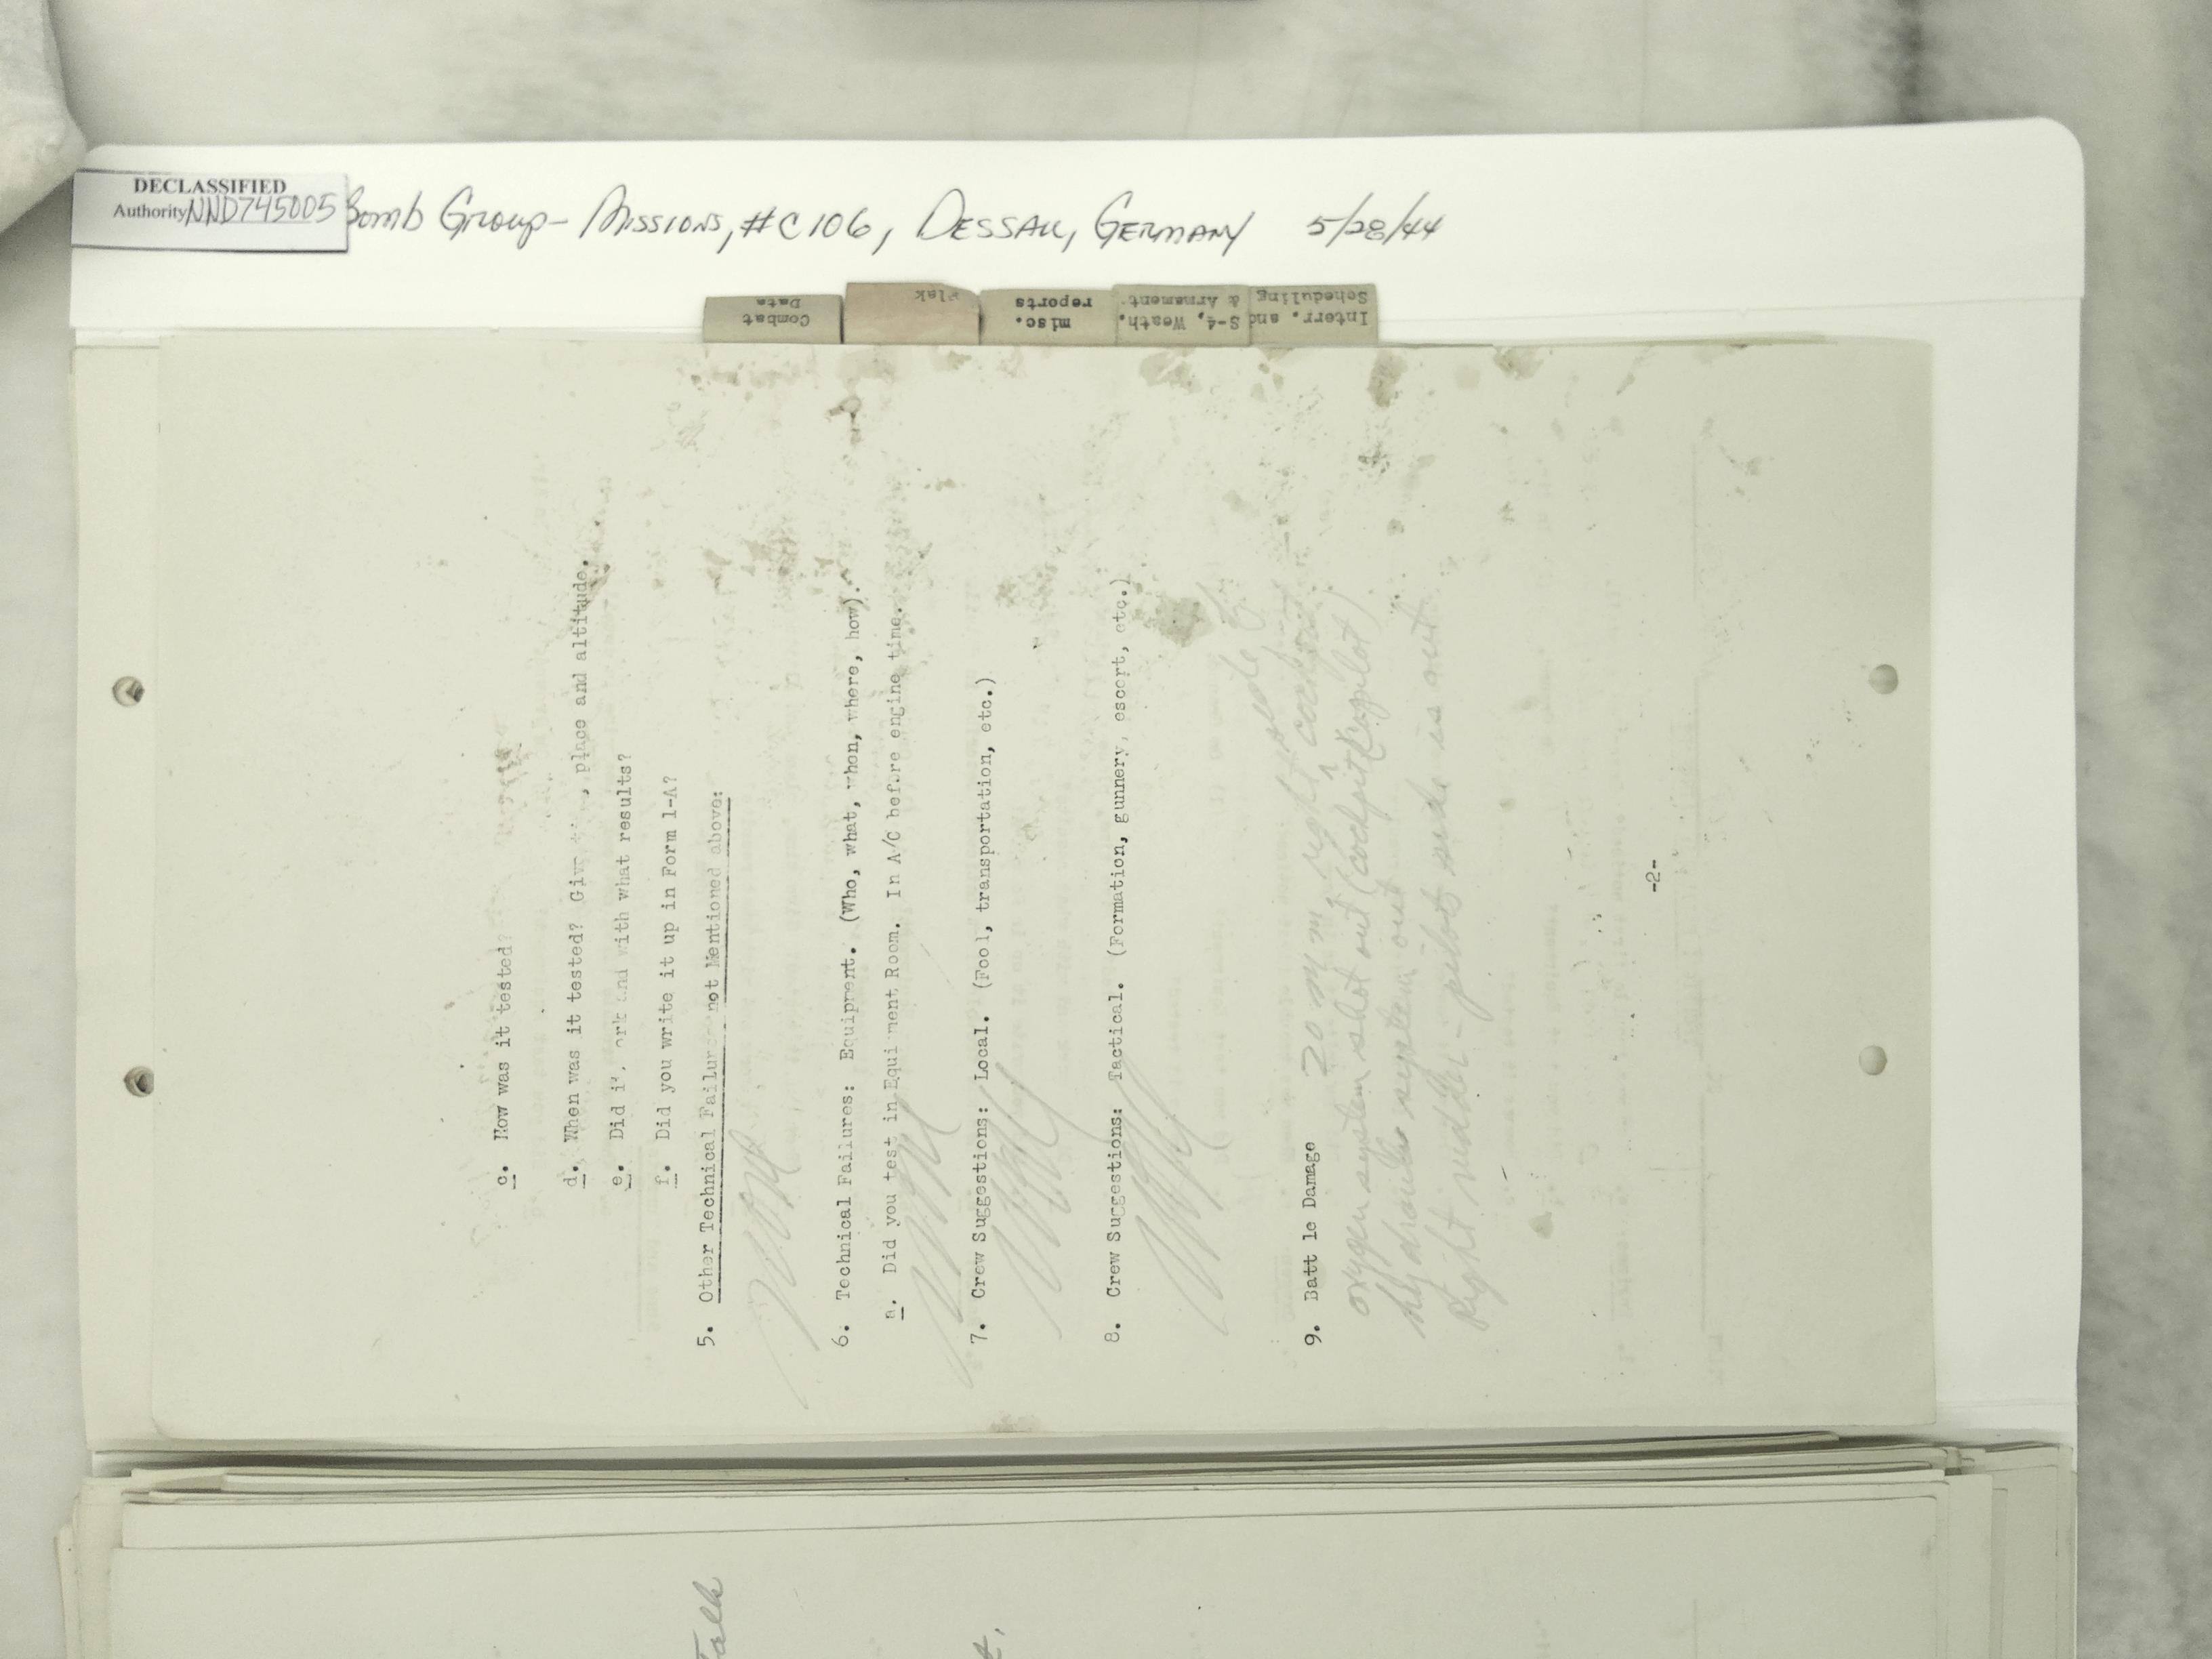 DECLASSIFIED
Authority NND745005
Bomb Group - Missions, #C106, Dessau, Germany 5/28/44
Combat Data
Flak
misc. reports
S-4, Weath. & Armament
Interr. and Scheduling
c. How was it tested?
d. When was it tested? Give , place and altitude.
e. Did it work and with what results?
f. Did you write it up in Form 1-A?
5. Other Technical Failures not Mentioned above:
None
6. Technical Failures: Equipment. (Who, what, when, where, how).
a. Did you test in Equipment Room. In A/C before engine time.
None
7. Crew Suggestions: Local. (Food, transportation, etc.)
8. Crew Suggestions: Tactical. (Formation, gunnery, escort, etc.)
9. Batt le Damage 20 mm, right side of cockpit
oxygen system shot out (cockpit copilot)
hydraulic system out
Right rudder - pilots side is out
-2-
Talk